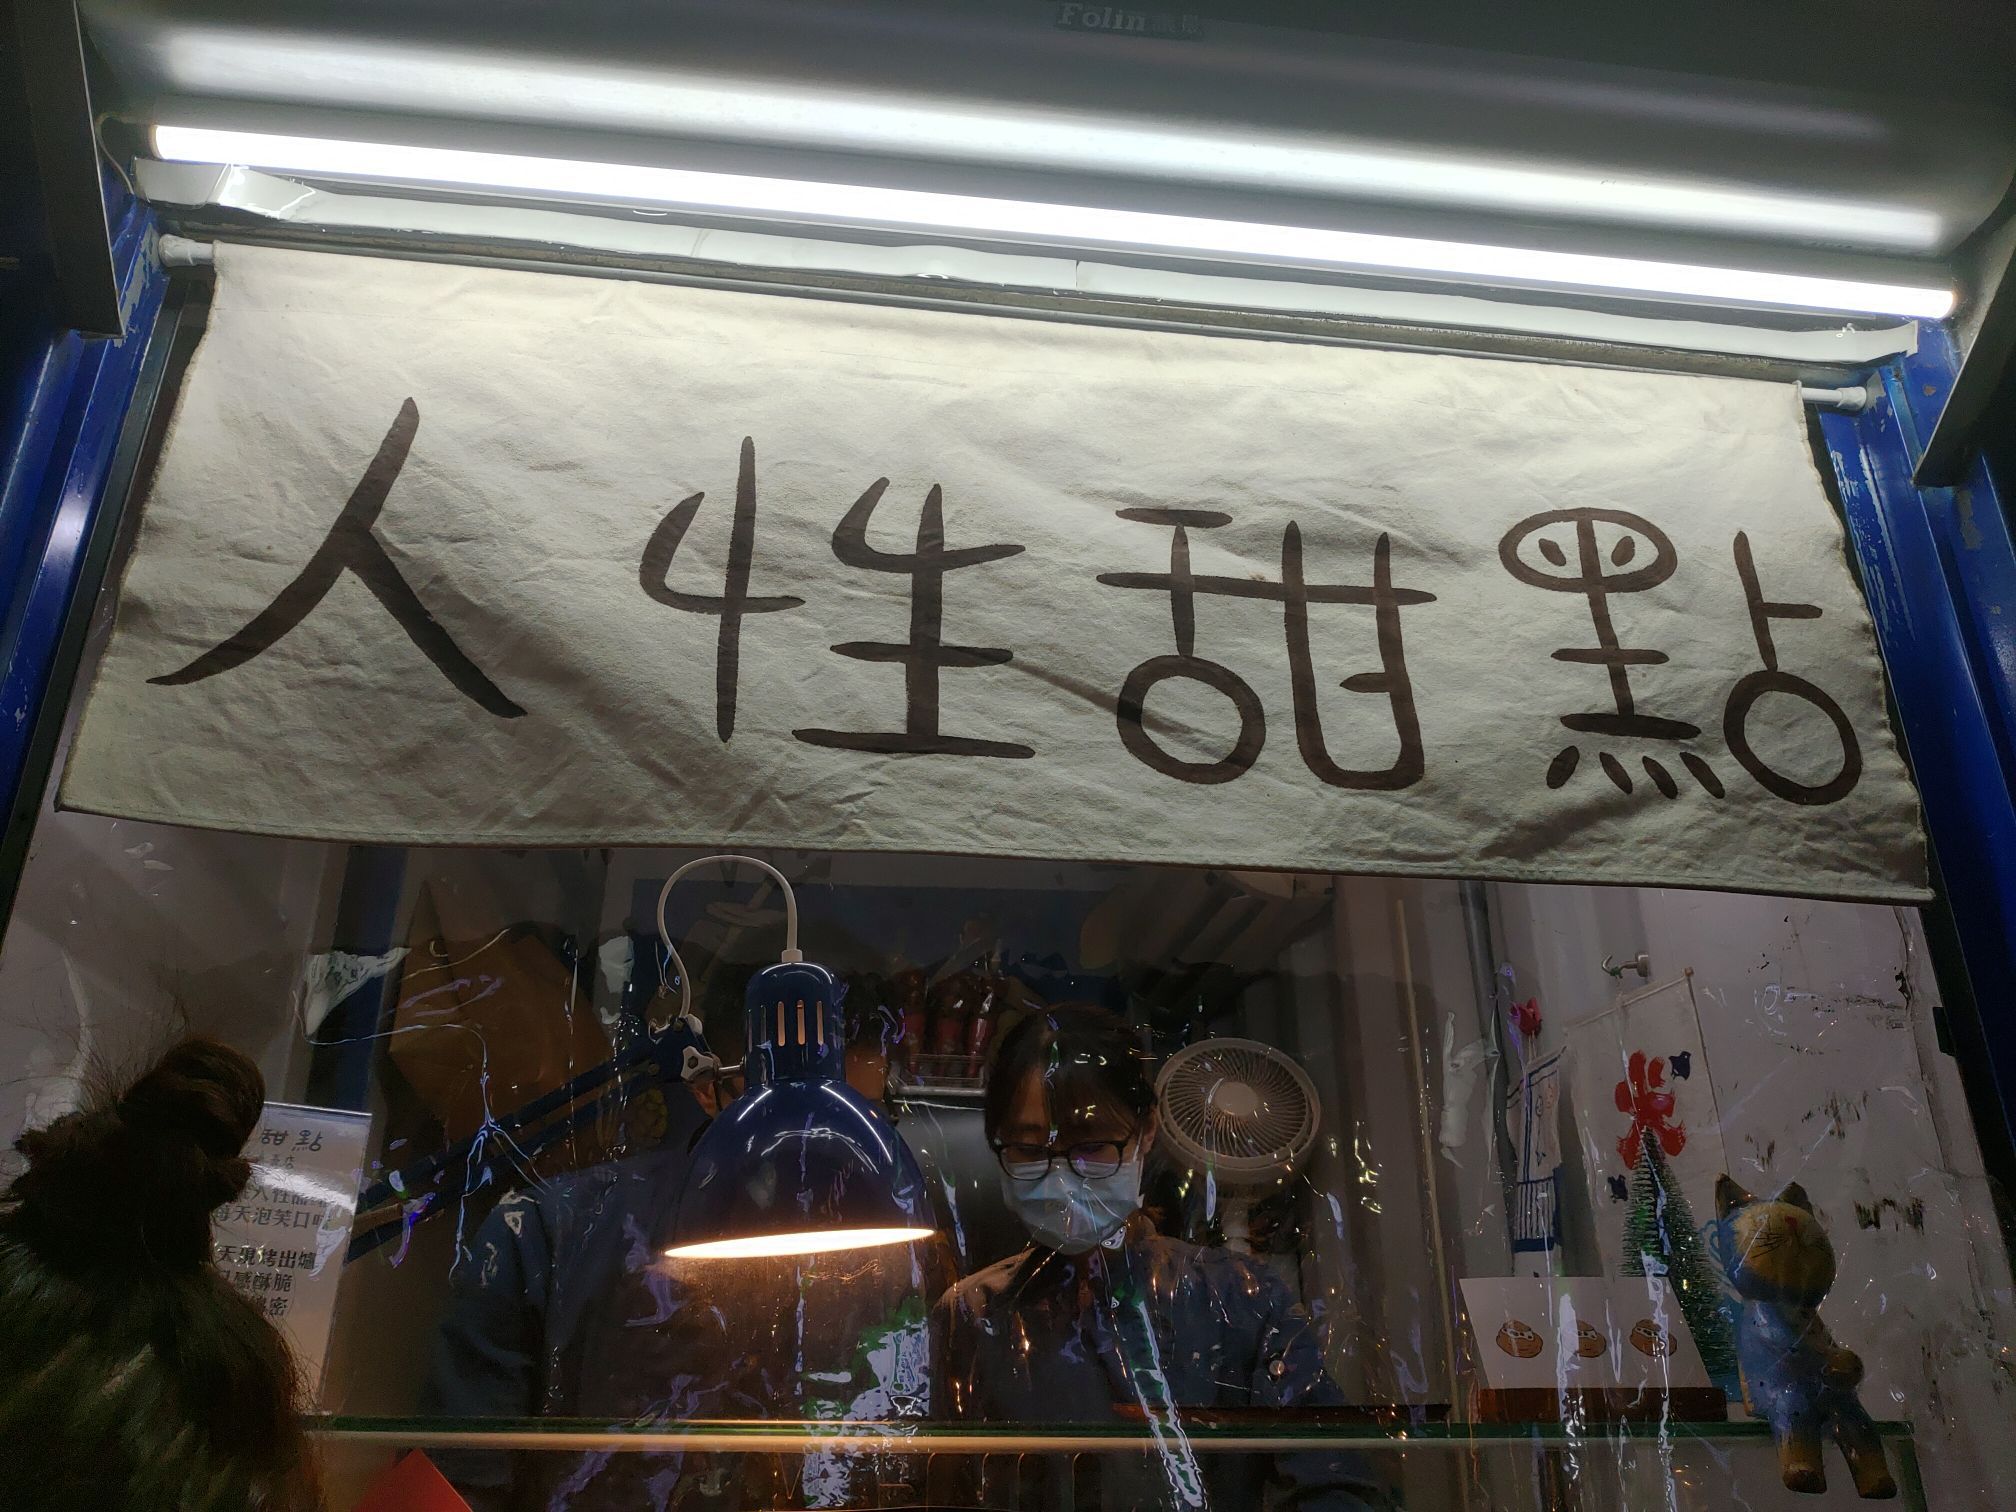 Folin
人性甜點
甜點
每天泡芙
天現烤出爐
感酥脆
密